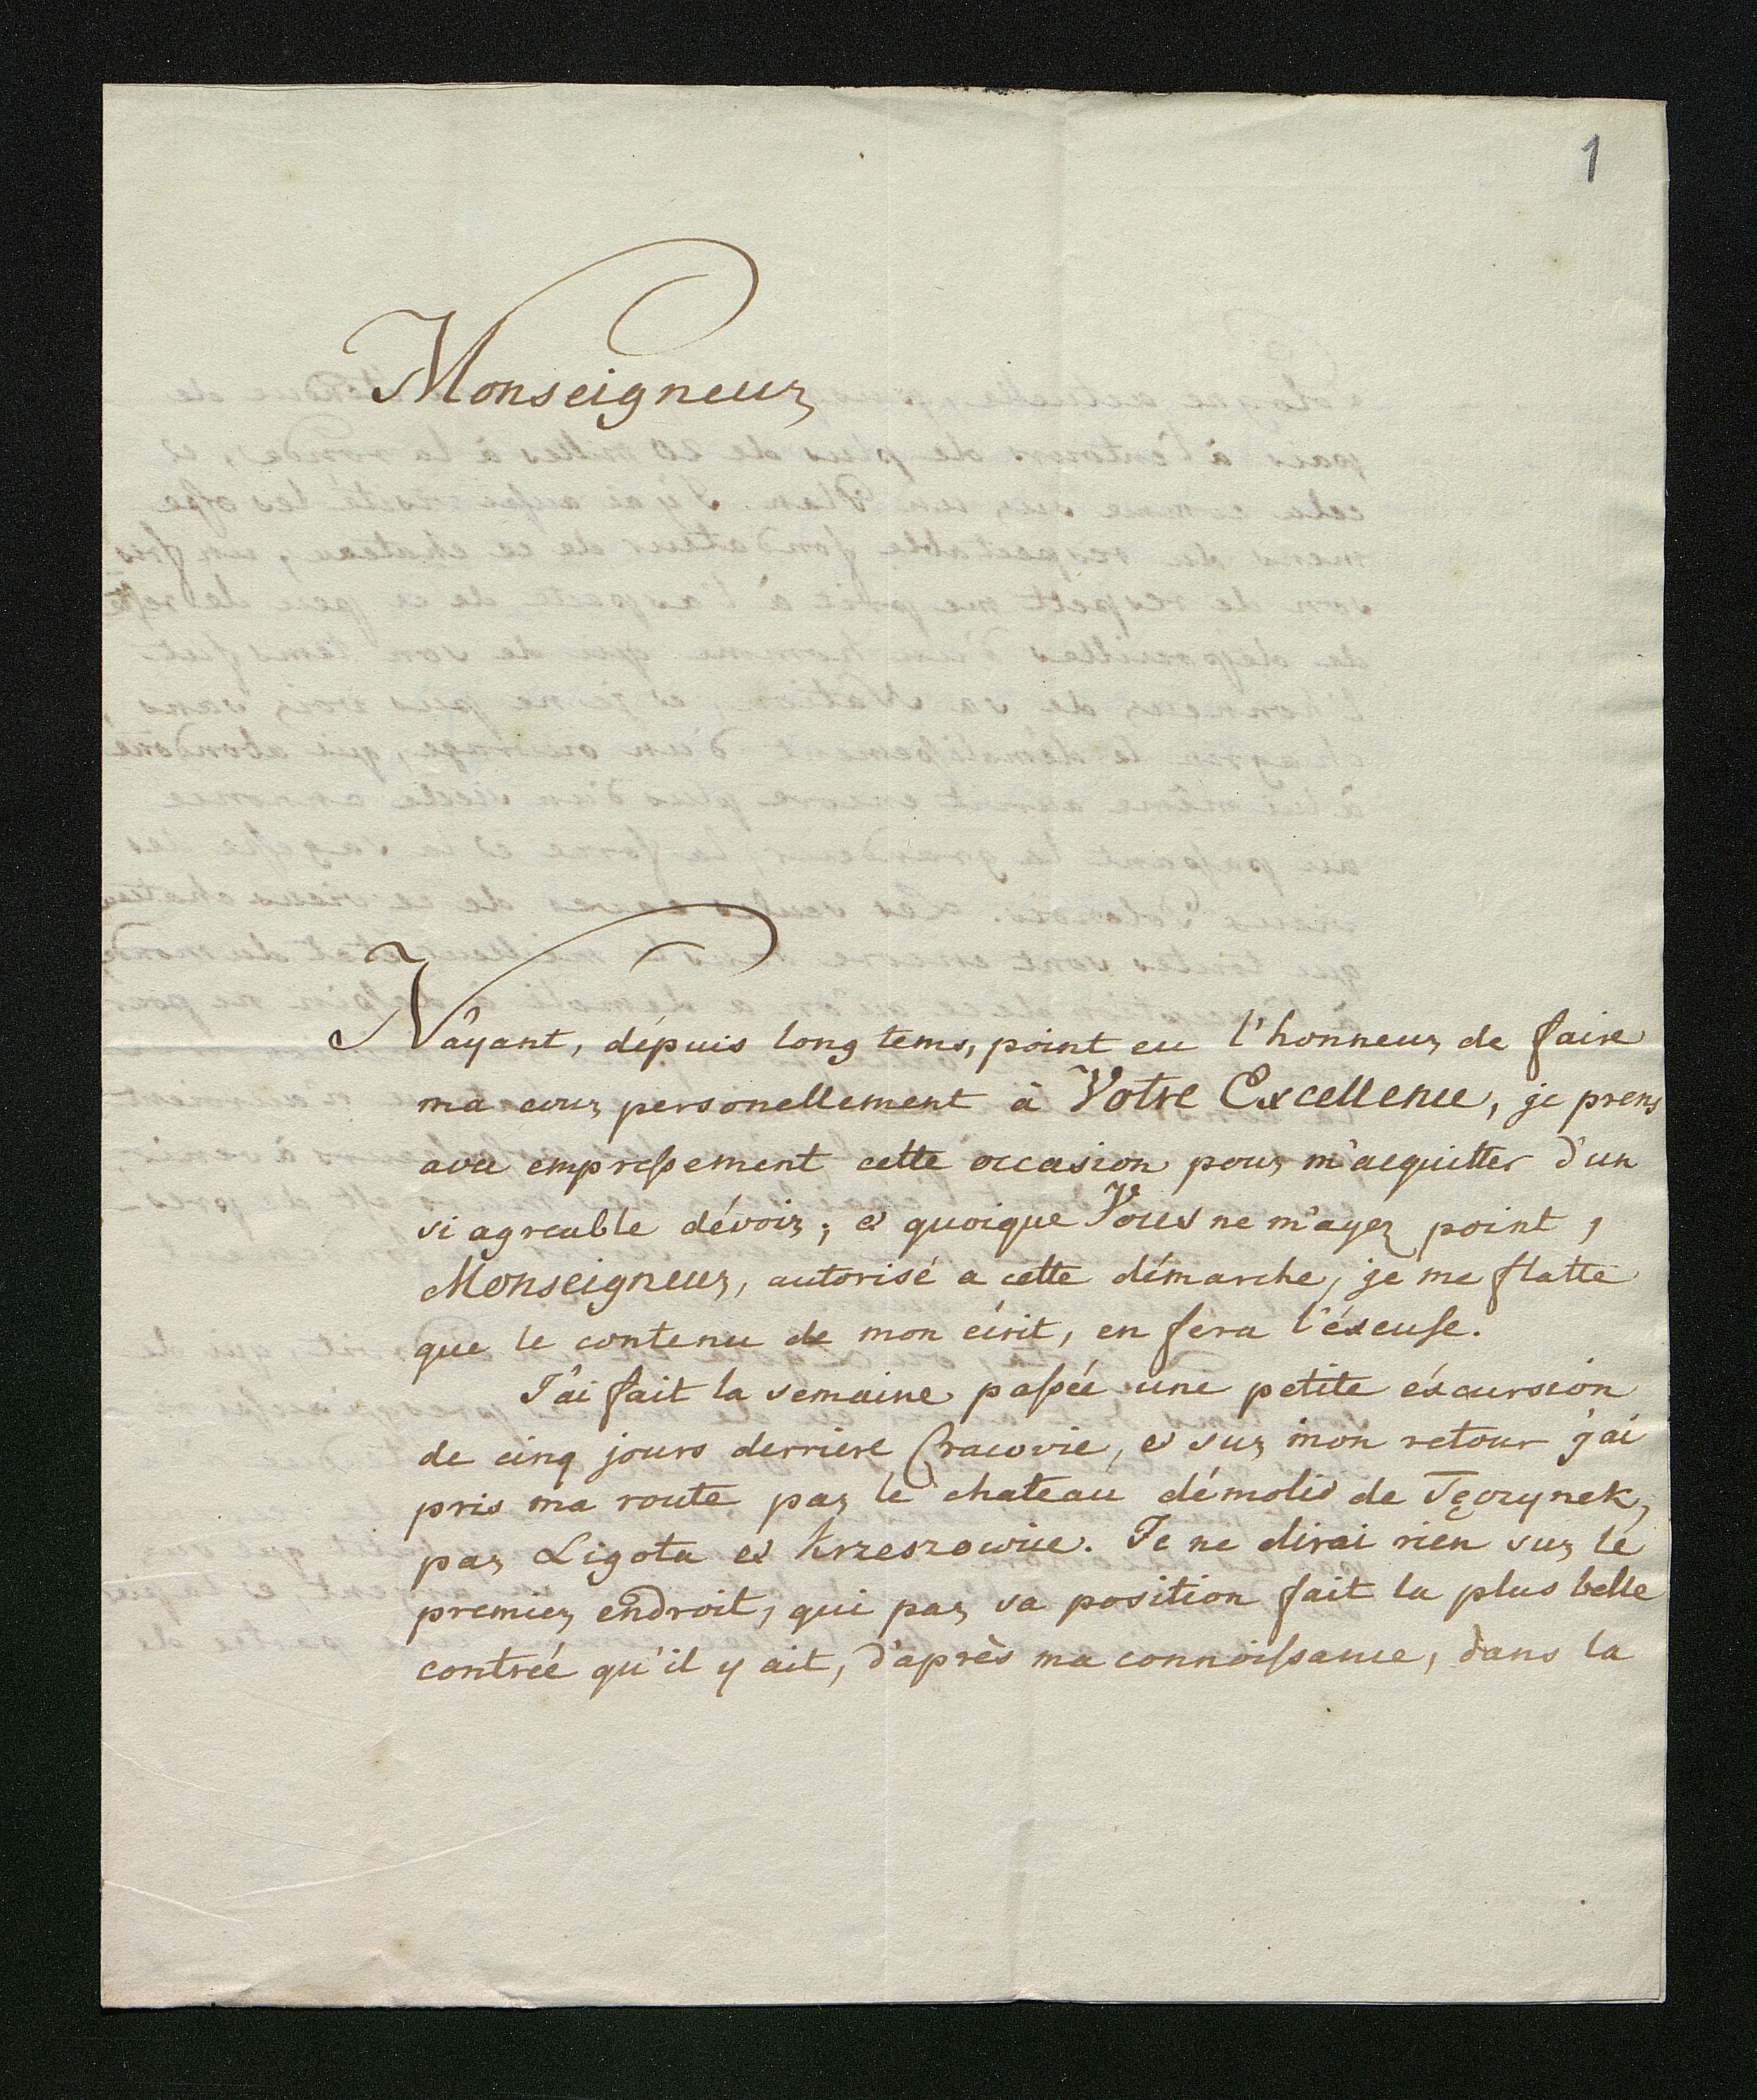 1
Monseigneur
N'âyant, dépuis long tems, point eu l'honneur de faire
ma cour personellement à Votre Excellence, je prens
avec empreſsement cette occasion pour m'acquitter d'un
si agreable dévoir; et quoique Vous ne m'ayez point,
Monseigneur, autorisé a cette démarche, je me flatte
que le contenu de mon écrit, en fera l'éxcuſe.
J'ai fait la semaine paſsée une petite éxcursion
de cinq jours derriere Cracovie, et sur mon retour j'ai
pris ma route par le chateau démolis de Tęczynek,
par Ligota et Krzeszowice. Je ne dirai rien sur le
premier endroit, qui par sa position fait la plus belle
contrée qu'il y ait, d'après ma connoiſsance, dans la